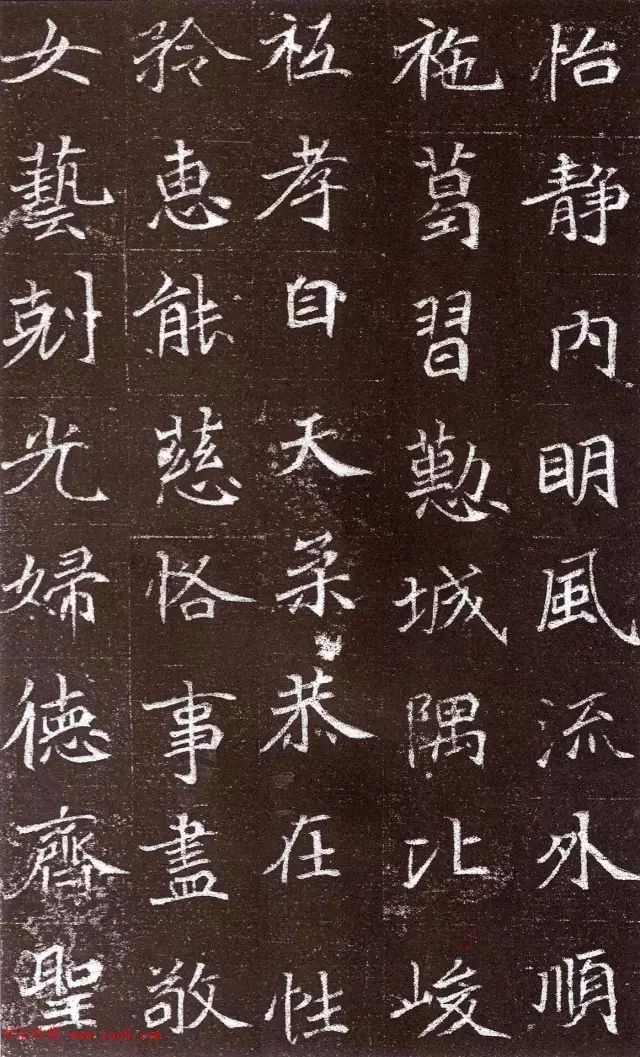 怡静内明風流外順
袘葛習懃城隅比峻
祗孝自天柔恭在性
矜惠能慈恪事盡敬
女藝剋光婦德齊聖
www.yac8.com